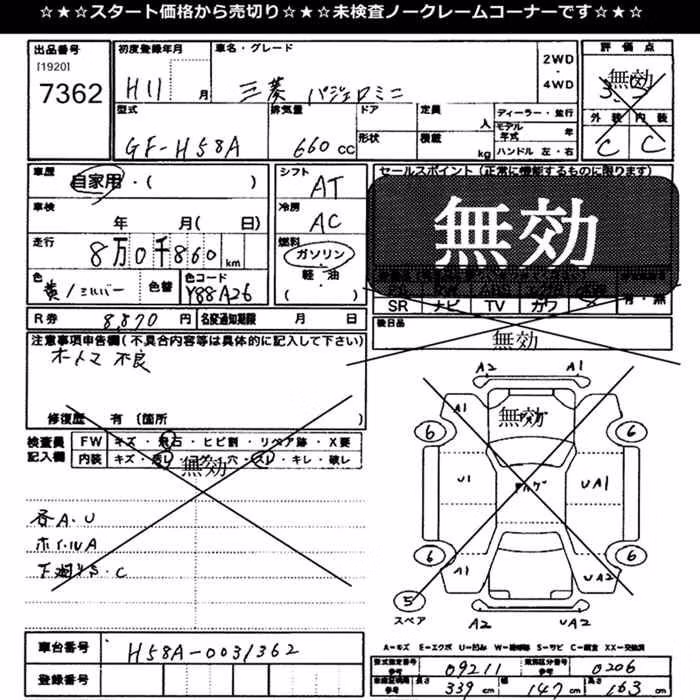 ☆★☆スタート価格から売切り☆★☆未検査ノークレームコーナーです☆★☆
出品番号
[1920]
7362
初度登録年月
H11 月
車名・グレード
三菱 パジェロミニ
2WD
・
4WD
評価点
無効
外装 内装
C C
型式
GF-H58A
排気量
660 CC
ドア
形状
定員
人
積載
kg
ディーラー・並行
モデル年式 年
ハンドル 左・右
車歴
自家用・( )
シフト
AT
セールスポイント (正常に機能するものに限ります)
無効
車検
年 月( 日)
冷房
AC
走行
8万0千860 km
燃料
ガソリン
軽・油
( )
色
黄/シルバー
色替
色コード
Y88A26
SR ナビ TV カワ
有・無
R券 8,870 円
名変通知期限 月 日
後日品
無効
注意事項申告欄(不具合内容等は具体的に記入して下さい)
オートマ 不良
修復歴 有 〔箇所 〕
検査員
記入欄
FW キズ・飛石・ヒビ割・リペア跡・X要
内装 キズ・ 穴・スレ・キレ・破レ
無効
各A.U
ホイールA
下廻りS.C
A2 A1
A1
無効
6 6
U1 UA1
6 6
A1 UA2
5
スペア
A2 UA2
A=キズ E=エクボ U=凹み W=補修跡 S=サビ C=腐食 XX=交換済
車台番号 H58A-0031362
登録番号
型式指定番号
参考
09211
類別区分番号
参考
0206
参考
長さ 339 cm
幅 147 cm
高さ 163 cm